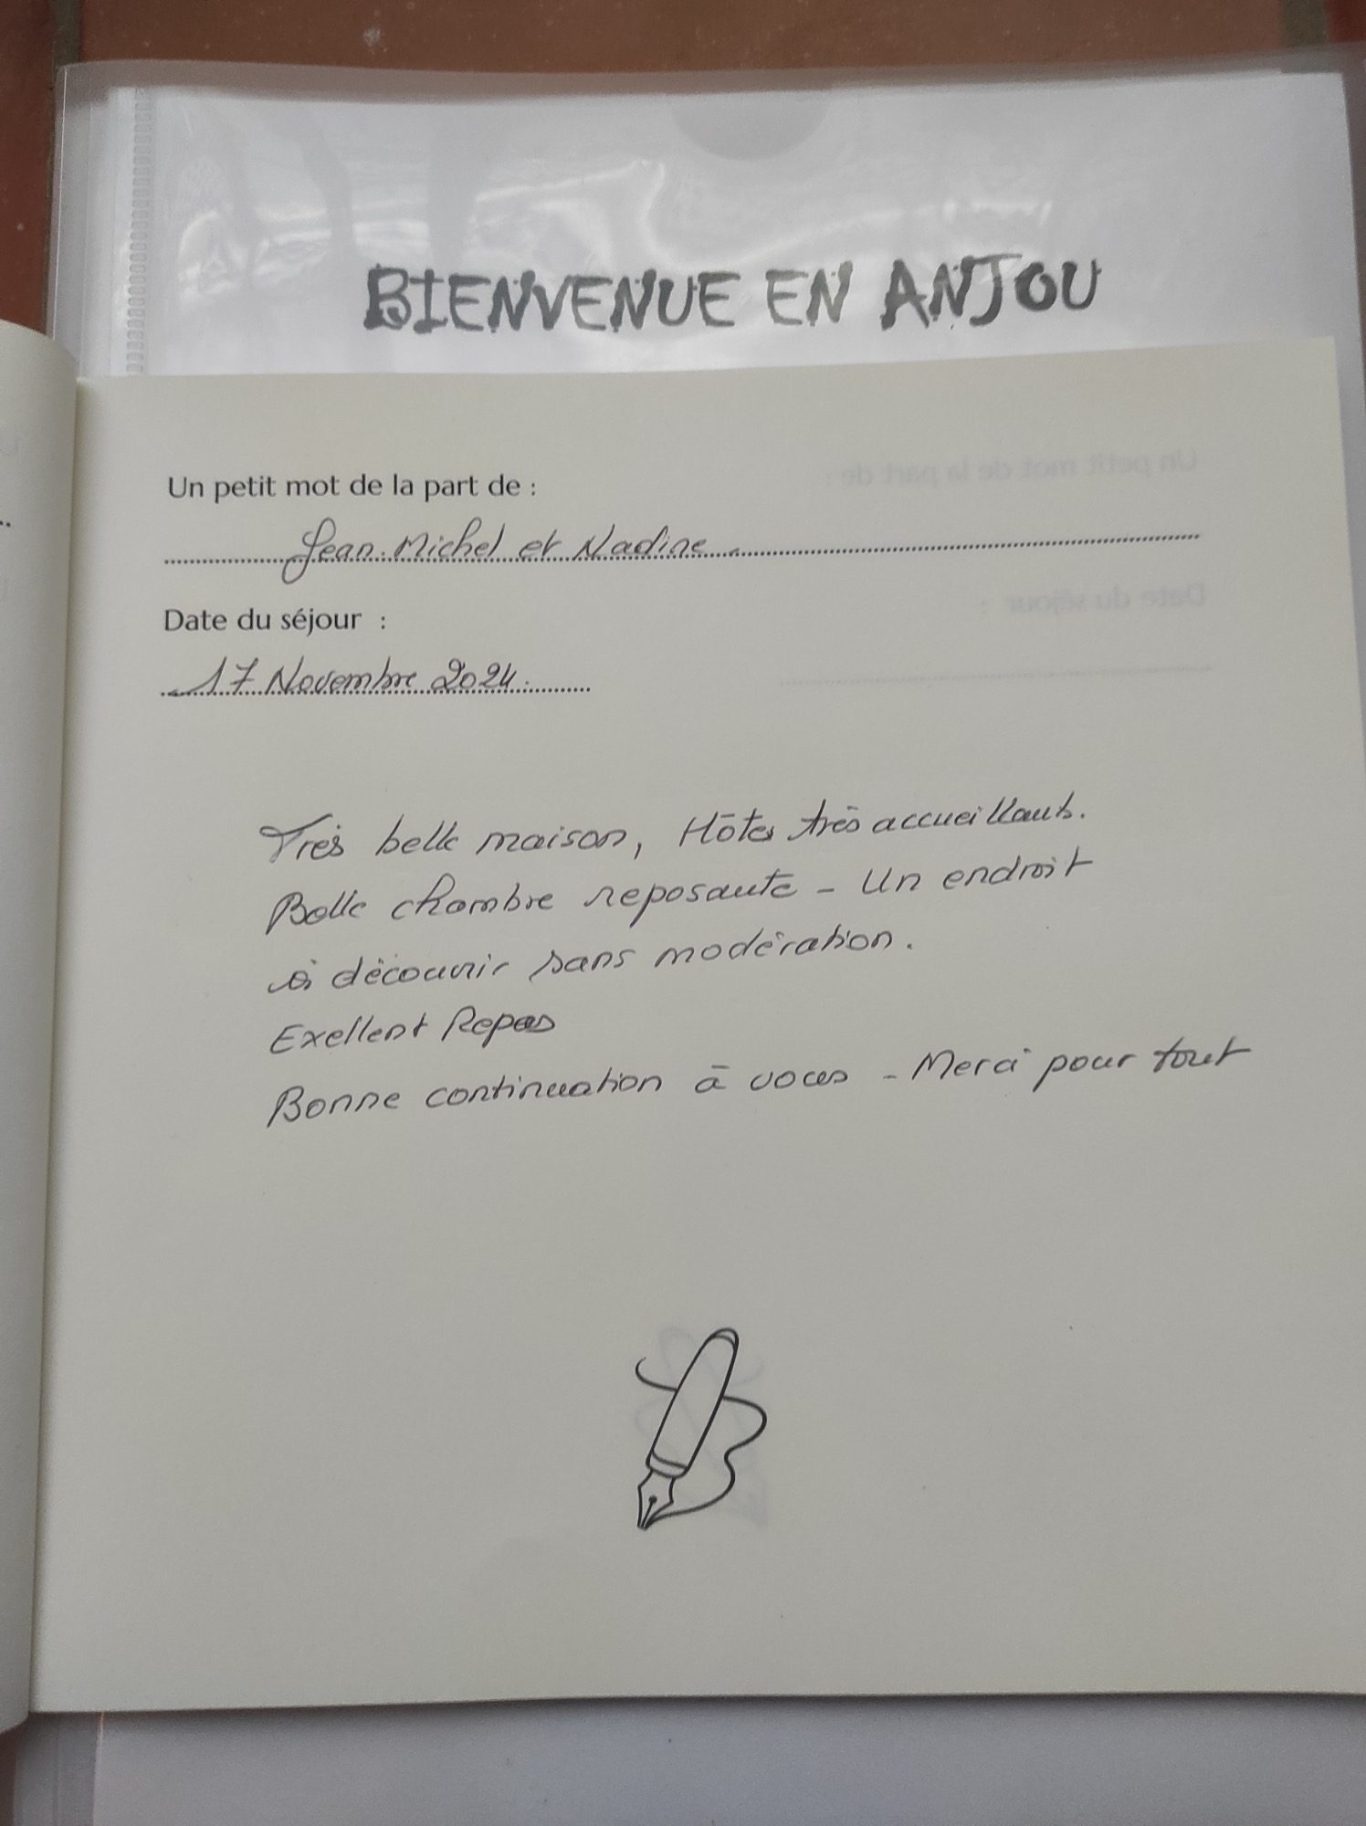 BIENVENUE EN ANJOU
Un petit mot de la part de :
Jean-Michel et Nadine.
Date du séjour :
17 Novembre 2024.
Très belle maison, Hôtes très accueillants.
Belle chambre reposante - Un endroit
à découvrir sans modération.
Exellent Repas
Bonne continuation à vous - Merci pour tout
Un petit mot de la part de :
Date du séjour :